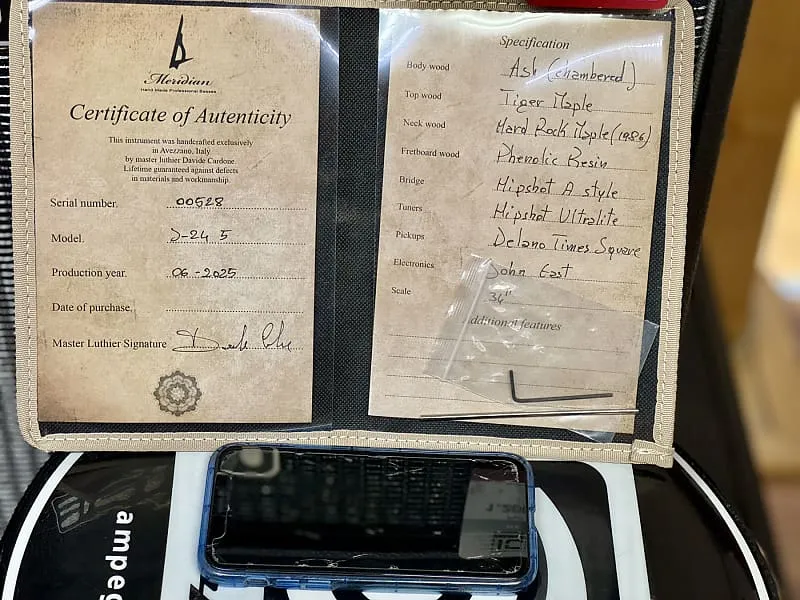 Meridian
Hand Made Professional Basses
Certificate of Autenticity
This instrument was handcrafted exclusively
in Avezzano, Italy
by master luthier Davide Cardone.
Lifetime guaranteed against defects
in materials and workmanship.
Serial number. 00528
Model. J-24 5
Production year. 06-2025
Date of purchase.
Master Luthier Signature
Specification
Body wood Ash (chambered)
Top wood Tiger Maple
Neck wood Hard Rock Maple (1986)
Fretboard wood Phenolic Resin
Bridge Hipshot A style
Tuners Hipshot Ultralite
Pickups Delano Times Square
Electronics John East
Scale 34"
Additional features
ampeg